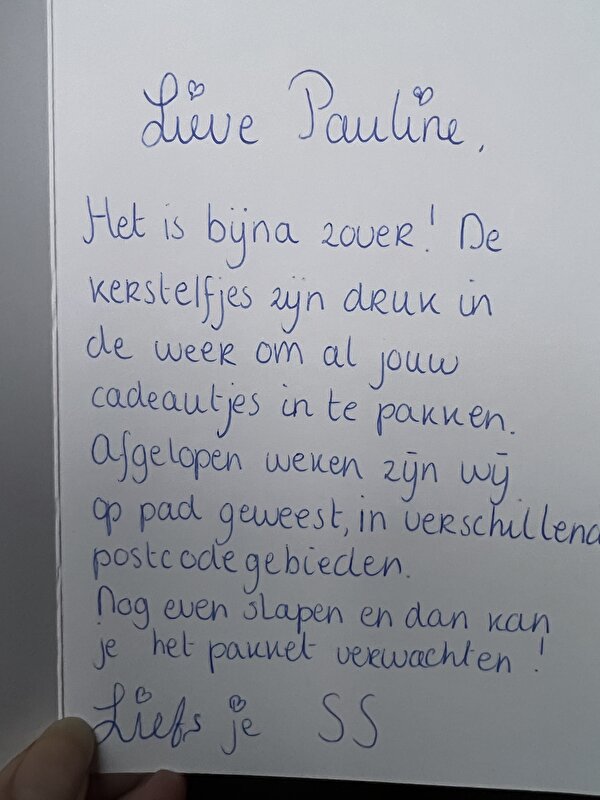 Lieve Pauline,
Het is bijna zover! De
kerstelfjes zijn druk in
de weer om al jouw
cadeautjes in te pakken.
Afgelopen weken zijn wij
op pad geweest, in verschillend
postcode gebieden.
Nog even slapen en dan kan
je het pakket verwachten!
Liefs je SS